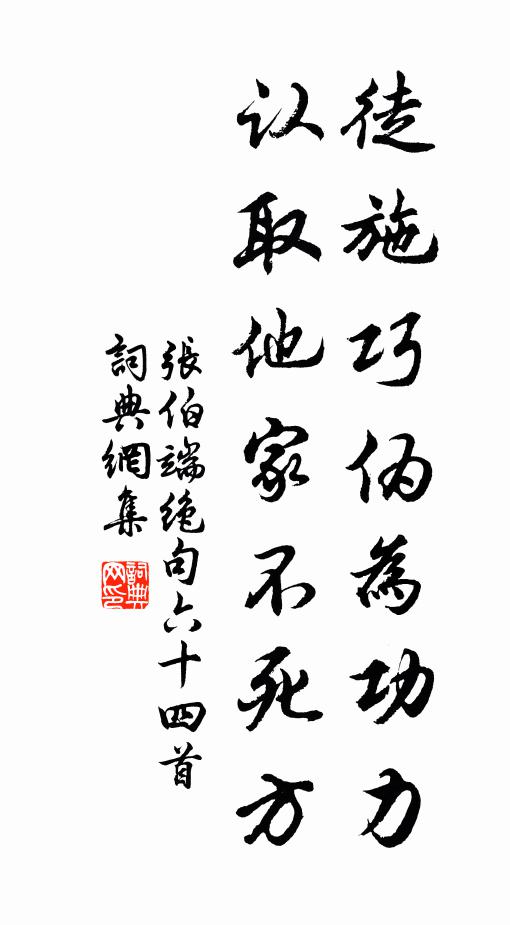 徒施巧伪為功力
认取他家不死方
張伯端绝句六十四首
詞典網集
詞典网印